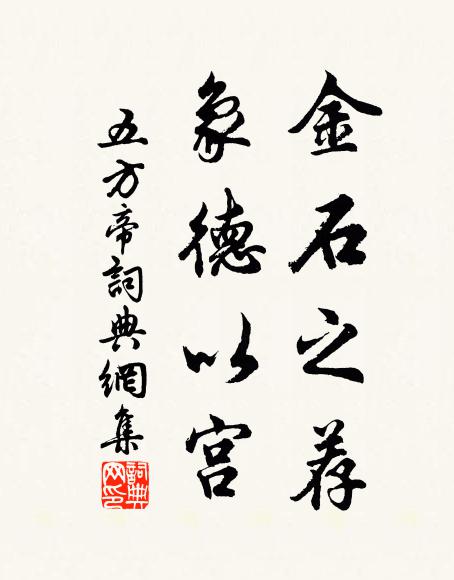 金石之荐
象德以宫
五方帝詞典網集
詞典网印